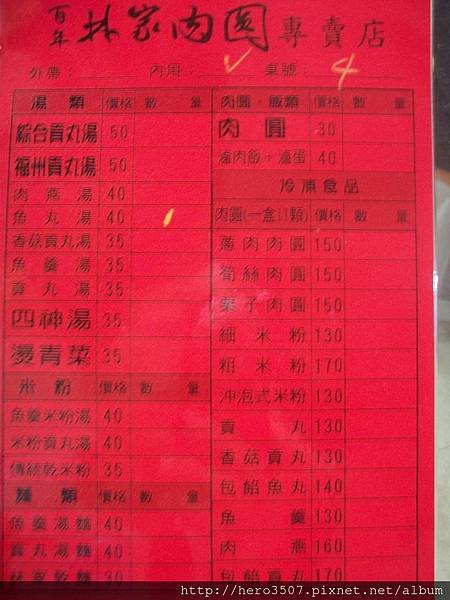 百年 林家肉圓 專賣店
外帶： 內用：✓ 桌號：4
湯類 價格 數量
綜合貢丸湯 50
福州貢丸湯 50
肉燕湯 40
魚丸湯 40
香菇貢丸湯 35
魚羹湯 35
貢丸湯 35
四神湯 35
燙青菜 35
米粉 價格 數量
魚羹米粉湯 40
米粉貢丸湯 40
傳統乾米粉 35
麵類 價格 數量
魚羹湯麵 40
貢丸湯麵 40
林家乾麵
肉圓‧飯類 價格 數量
肉圓 30
滷肉飯+滷蛋 40
冷凍食品
肉圓(一盒11顆) 價格 數量
蔥肉肉圓 150
筍絲肉圓 150
栗子肉圓 150
細米粉 130
粗米粉 170
沖泡式米粉 130
貢丸 130
香菇貢丸 130
包餡魚丸 140
魚羹 130
肉燕 160
包餡貢丸 170
http://hero3507.pixnet.net/album